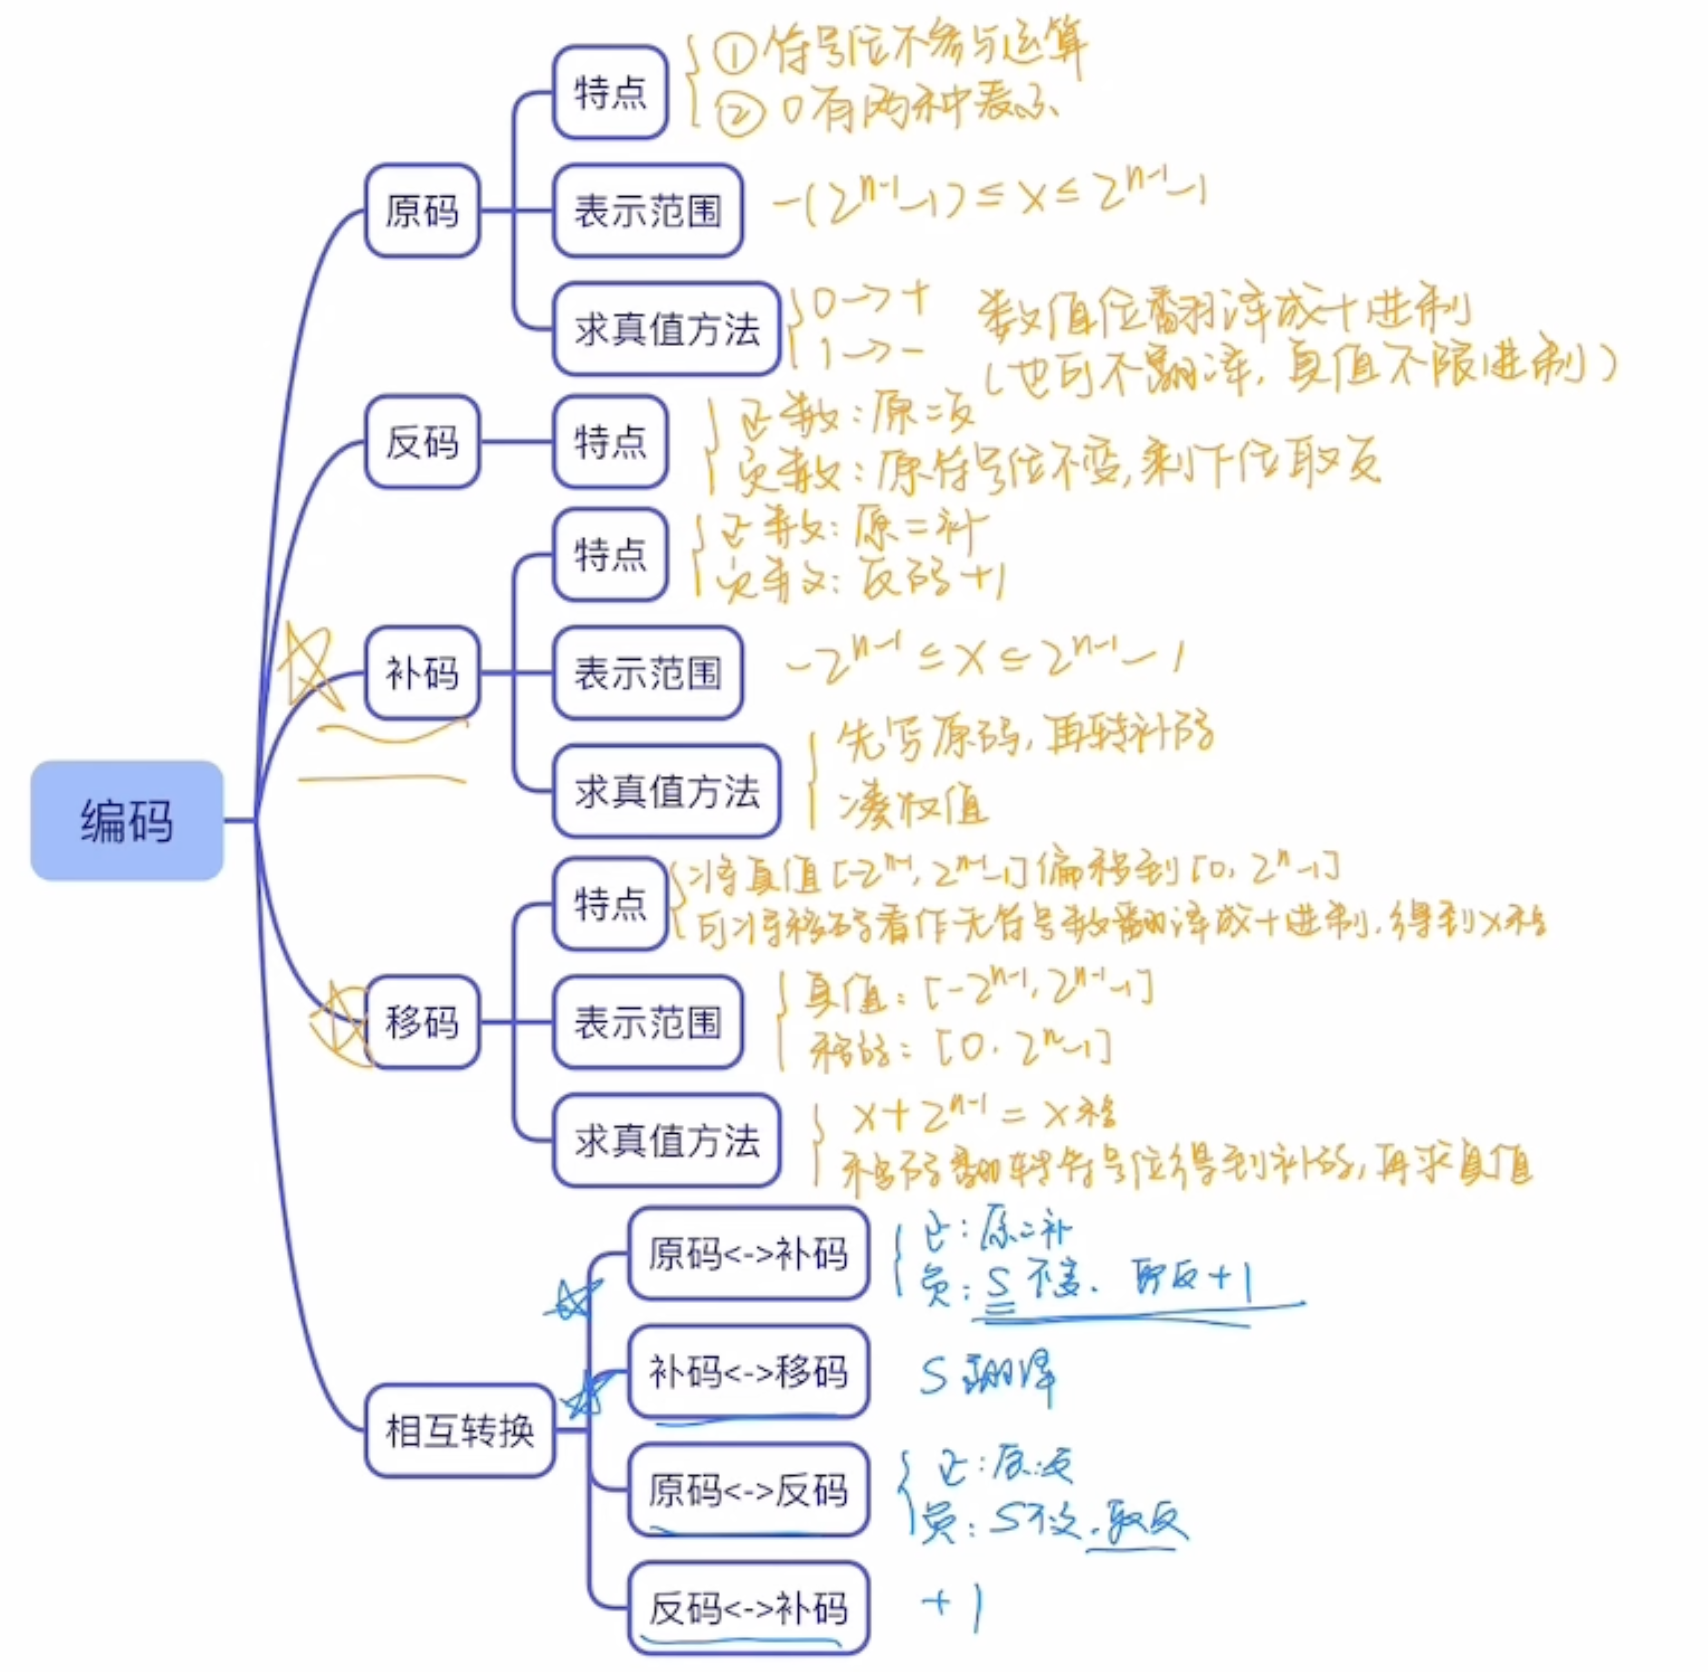 编码
原码
特点
①符号位不参与运算
②0有两种表示
表示范围
-(2ⁿ⁻¹-1)≤x≤2ⁿ⁻¹-1
求真值方法
0→+ 数值位翻译成十进制
1→- (也可不翻译,真值不限进制)
反码
特点
正数:原=反
负数:原符号位不变,剩下位取反
补码
特点
正数:原=补
负数:反码+1
表示范围
-2ⁿ⁻¹≤x≤2ⁿ⁻¹-1
求真值方法
先写原码,再转补码
凑权值
移码
特点
将真值[-2ⁿ⁻¹,2ⁿ⁻¹-1]偏移到[0,2ⁿ-1]
可将移码看作无符号数翻译成十进制,得到x移
表示范围
真值:[-2ⁿ⁻¹,2ⁿ⁻¹-1]
移码:[0,2ⁿ-1]
求真值方法
x+2ⁿ⁻¹=x移
移码翻转符号位得到补码,再求真值
相互转换
原码<->补码
正:原=补
负:S不变.取反+1
补码<->移码
S翻译
原码<->反码
正:原=反
负:S不变.取反
反码<->补码
+1